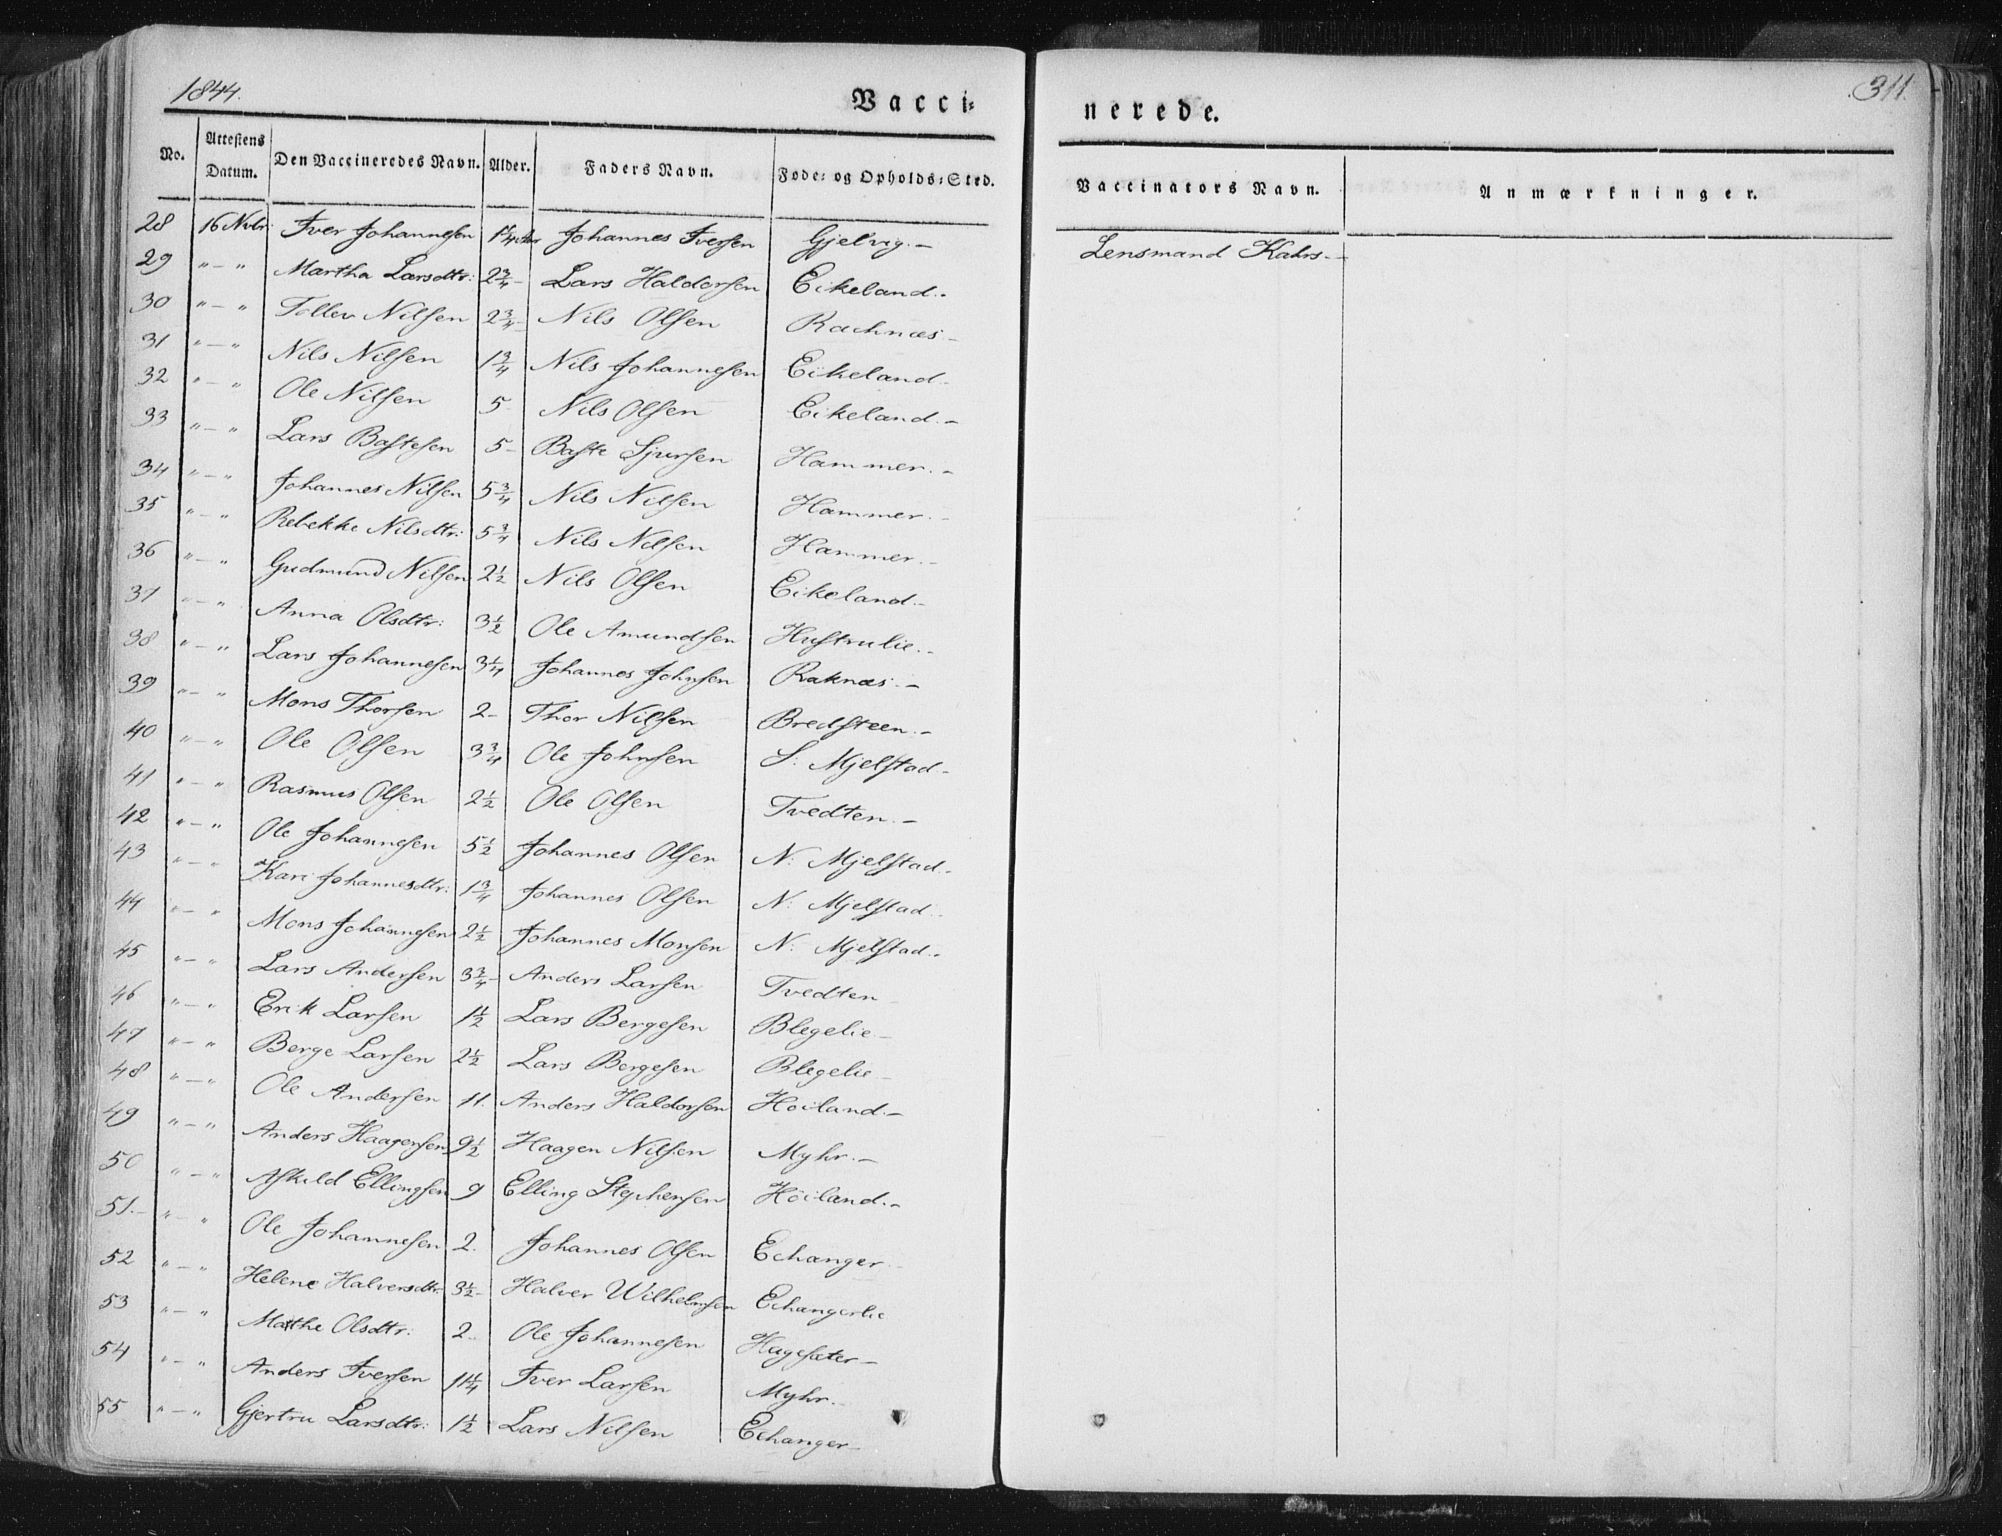 1844.
Vacci-
nerede.
311.
No. Attestens Datum. Den Vaccineredes Navn. Alder. Faders Navn. Føde- og Opholds-Sted. Vaccinators Navn. Anmærkninger.
28 16 Nvbr: Iver Johannesen 1 1/4 Johannes Iversen Gjelvig.- Lensmand Kahrs-
29 "-" Martha Larsdtr: 2 3/4- Lars Haldorsen Eikeland.-
30 "-" Tollev Nilsen 2 3/4- Nils Olsen Racknæs-
31 "-" Nils Nilsen 1 3/4 Nils Johannesen Eikeland.-
32 "-" Ole Nilsen 5- Nils Olsen Eikeland.-
33 "-" Lars Bastesen 5- Baste Sjursen Hammer.-
34 "-" Johannes Nilsen 5 3/4 Nils Nilsen Hammer.-
35 "-" Rebekke Nilsdtr: 5 3/4 Nils Nilsen Hammer.-
36 "-" Gudmund Nilsen 2 1/2 Nils Olsen Eikeland.-
37 "-" Anna Olsdtr: 3 1/2 Ole Amundsen Hustrulie.-
38 "-" Lars Johannesen 3 1/4 Johannes Johnsen Raknæs.-
39 "-" Mons Thorsen 2- Thor Nilsen Bredsteen.-
40 "-" Ole Olsen 3 3/4 Ole Johnsen S: Mjelstad-
41 "-" Rasmus Olsen 2 1/2 Ole Olsen Tvedten.-
42 "-" Ole Johannesen 5 1/2 Johannes Olsen N: Mjelstad.-
43 "-" Kari Johannesdtr: 1 3/4 Johannes Olsen N: Mjelstad.-
44 "-" Mons Johannesen 2 1/2 Johannes Monsen N: Mjelstad.-
45 "-" Lars Andersen 3 3/4- Anders Larsen Tvedten-
46 "-" Erik Larsen 1 1/2 Lars Bergesen Blegelie-
47 "-" Berge Larsen 2 1/2 Lars Bergesen Blegelie-
48 "-" Ole Andersen 11. Anders Haldorsen Høiland.-
49 "-" Anders Haagensen 9 1/2 Haagen Nilsen Myhr.-
50 "-" Askild Ellingsen 9 Elling Stephensen Høiland.-
51.- "-" Ole Johannesen 2. Johannes Olsen Echanger-
52 "-" Helene Halversdtr: 3 1/2- Halver Wilhelmsen Echangerlie
53 "-" Matthe Olsdtr: 2.- Ole Johannesen Hagesæter-
54 "-" Anders Iversen 11 1/4 Iver Larsen Myhr.-
55 "-" Gjertru Larsdtr: 1 1/2 Lars Nilsen Echanger-